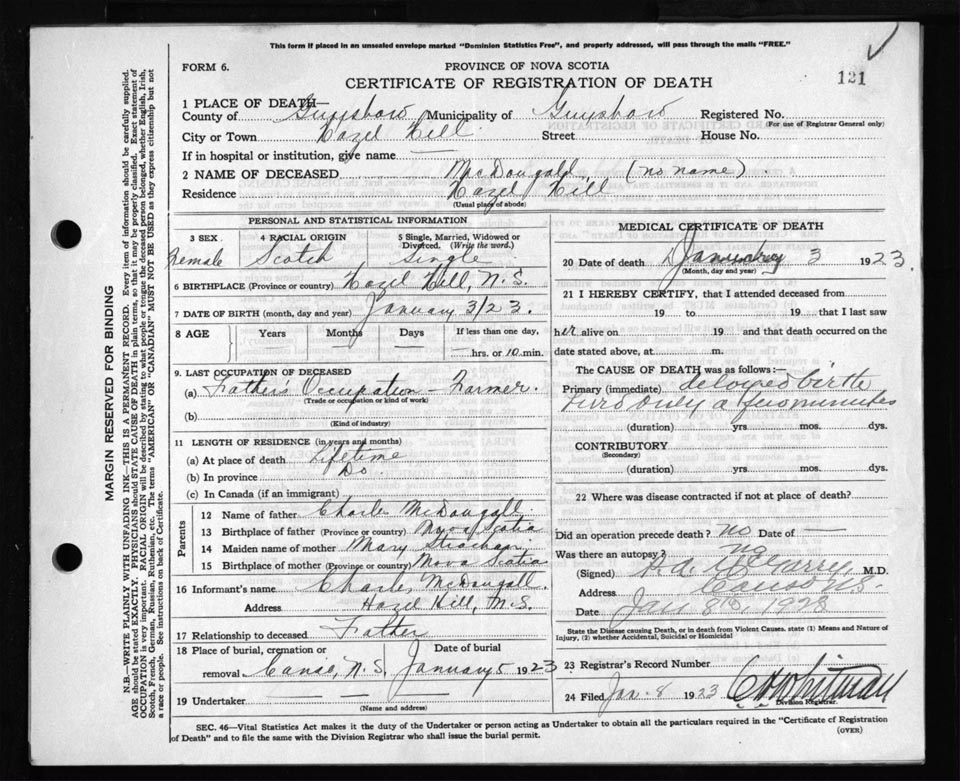 This form if placed in an unsealed envelope marked "Dominion Statistics Free", and properly addressed, will pass through the mails "FREE."
FORM 6.
PROVINCE OF NOVA SCOTIA
CERTIFICATE OF REGISTRATION OF DEATH
121
1 PLACE OF DEATH—
County of Guysboro /Municipality of Guysboro Registered No.
(For use of Registrar General only)
City or Town Hazel Hill Street House No.
If in hospital or institution, give name —
2 NAME OF DECEASED McDougall (no name).
Residence Hazel Hill
(Usual place of abode)
PERSONAL AND STATISTICAL INFORMATION
3 SEX 4 RACIAL ORIGIN 5 Single, Married, Widowed or Divorced. (Write the word.)
Female Scotch Single
6 BIRTHPLACE (Province or country) Hazel Hill, N.S.
7 DATE OF BIRTH (month, day and year) January 3/23.
8 AGE Years Months Days If less than one day,
— hrs. or 10 min.
9. LAST OCCUPATION OF DECEASED
(a) Father's Occupation - Farmer.
(Trade or occupation or kind of work)
(b)
(Kind of industry)
11 LENGTH OF RESIDENCE (in years and months)
(a) At place of death Lifetime
(b) In province Do.
(c) In Canada (if an immigrant)
Parents
12 Name of father Charles McDougall
13 Birthplace of father (Province or country) Nova Scotia
14 Maiden name of mother Mary Strachan
15 Birthplace of mother (Province or country) Nova Scotia
16 Informant's name Charles McDougall.
Address Hazel Hill, N.S.
17 Relationship to deceased Father
18 Place of burial, cremation or Date of burial
removal. Canso, N.S. January 5 1923
19 Undertaker — — —
(Name and address)
MEDICAL CERTIFICATE OF DEATH
20 Date of death January 3 1923.
(Month, day and year)
21 I HEREBY CERTIFY, that I attended deceased from
19 to 19 that I last saw
her alive on 19 and that death occurred on the
date stated above, at m.
The CAUSE OF DEATH was as follows:—
Primary (immediate) delayed birth
lived only a few minutes
(duration) yrs. mos. dys.
CONTRIBUTORY
(Secondary)
(duration) yrs. mos. dys.
22 Where was disease contracted if not at place of death?
Did an operation precede death? no Date of —
Was there an autopsy? no
(Signed) M.D.
Address Canso N.S.
Date Jan 8th, 1923
State the Disease causing Death, or in death from Violent Causes. state (1) Means and Nature of
Injury, (2) whether Accidental, Suicidal or Homicidal
23 Registrar's Record Number
24 Filed Jan. 8 1923 Whitman
Division Registrar.
SEC. 46—Vital Statistics Act makes it the duty of the Undertaker or person acting as Undertaker to obtain all the particulars required in the "Certificate of Registration
of Death" and to file the same with the Division Registrar who shall issue the burial permit.
(OVER)
MARGIN RESERVED FOR BINDING
N.B.—WRITE PLAINLY WITH UNFADING INK—THIS IS A PERMANENT RECORD. Every item of information should be carefully supplied.
AGE should be stated EXACTLY. PHYSICIANS should STATE CAUSE OF DEATH in plain terms, so that it may be properly classified. Exact statement of
OCCUPATION is very important. RACIAL ORIGIN will be described by stating to what people tongue the deceased person belonged, whether English, Irish,
Scotch, French, German, Russian, Ruthenian, etc. The terms "AMERICAN" OR "CANADIAN" MUST NOT BE USED as they express citizenship but not
a race or people. See instructions on back of Certificate.